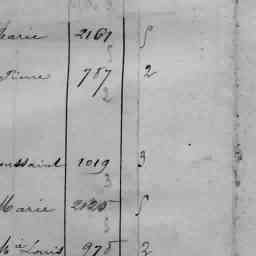 Marie 2161 5
5
Pierre 787 2
2
oussaint 1019 3
3
Marie 2125 5
5
Ma Louis 978 2